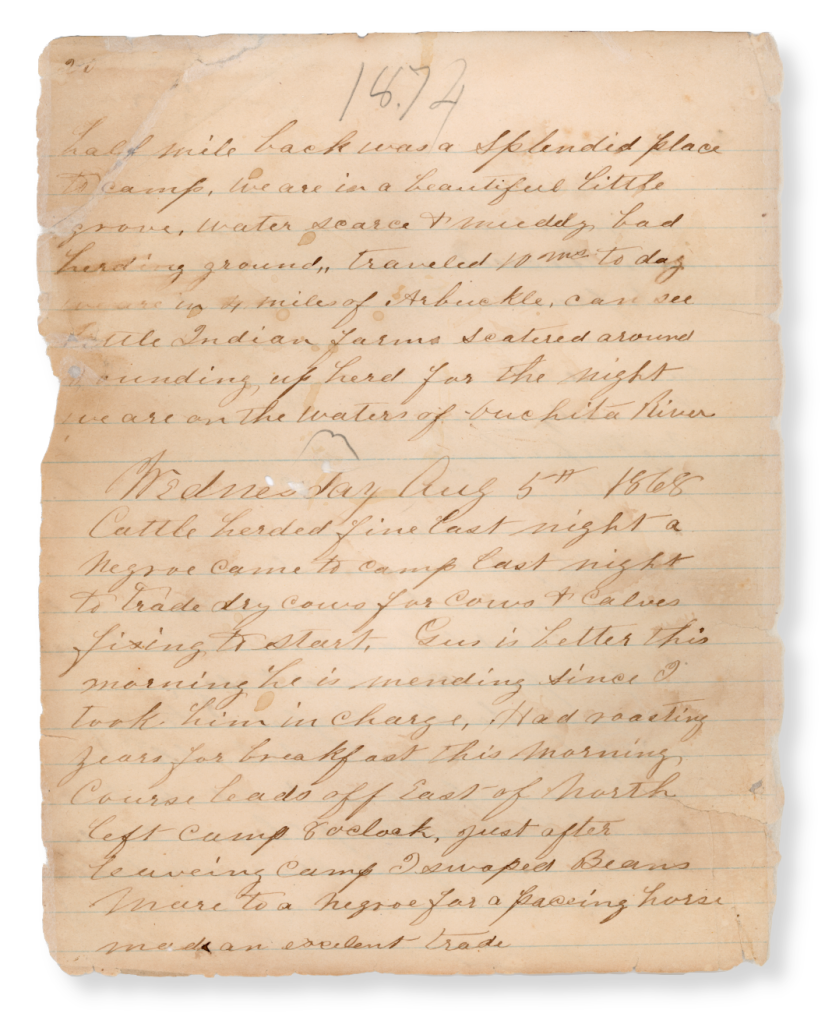 1874
half mile back was a splendid place
to camp, we are in a beautiful little
grove, water scarce & muddy, bad
herding ground,, traveled 10 mls to day
we are in 4 miles of Arbuckle, can see
little Indian farms scatered around
rounding up herd for the night
we are on the waters of Ouchita River
Wednesday Aug 5th 1868
Cattle herded fine last night a
negroe came to camp last night
to trade dry cows for cows & calves
fixing to start, Gus is better this
morning he is mending since I
took him in charge, Had roasting
years for breakfast this morning
Course leads off East of North
left camp 8 oclock, just after
leaveing camp I swaped Beans
Mare to a negroe for a paceing horse
made an excelent trade